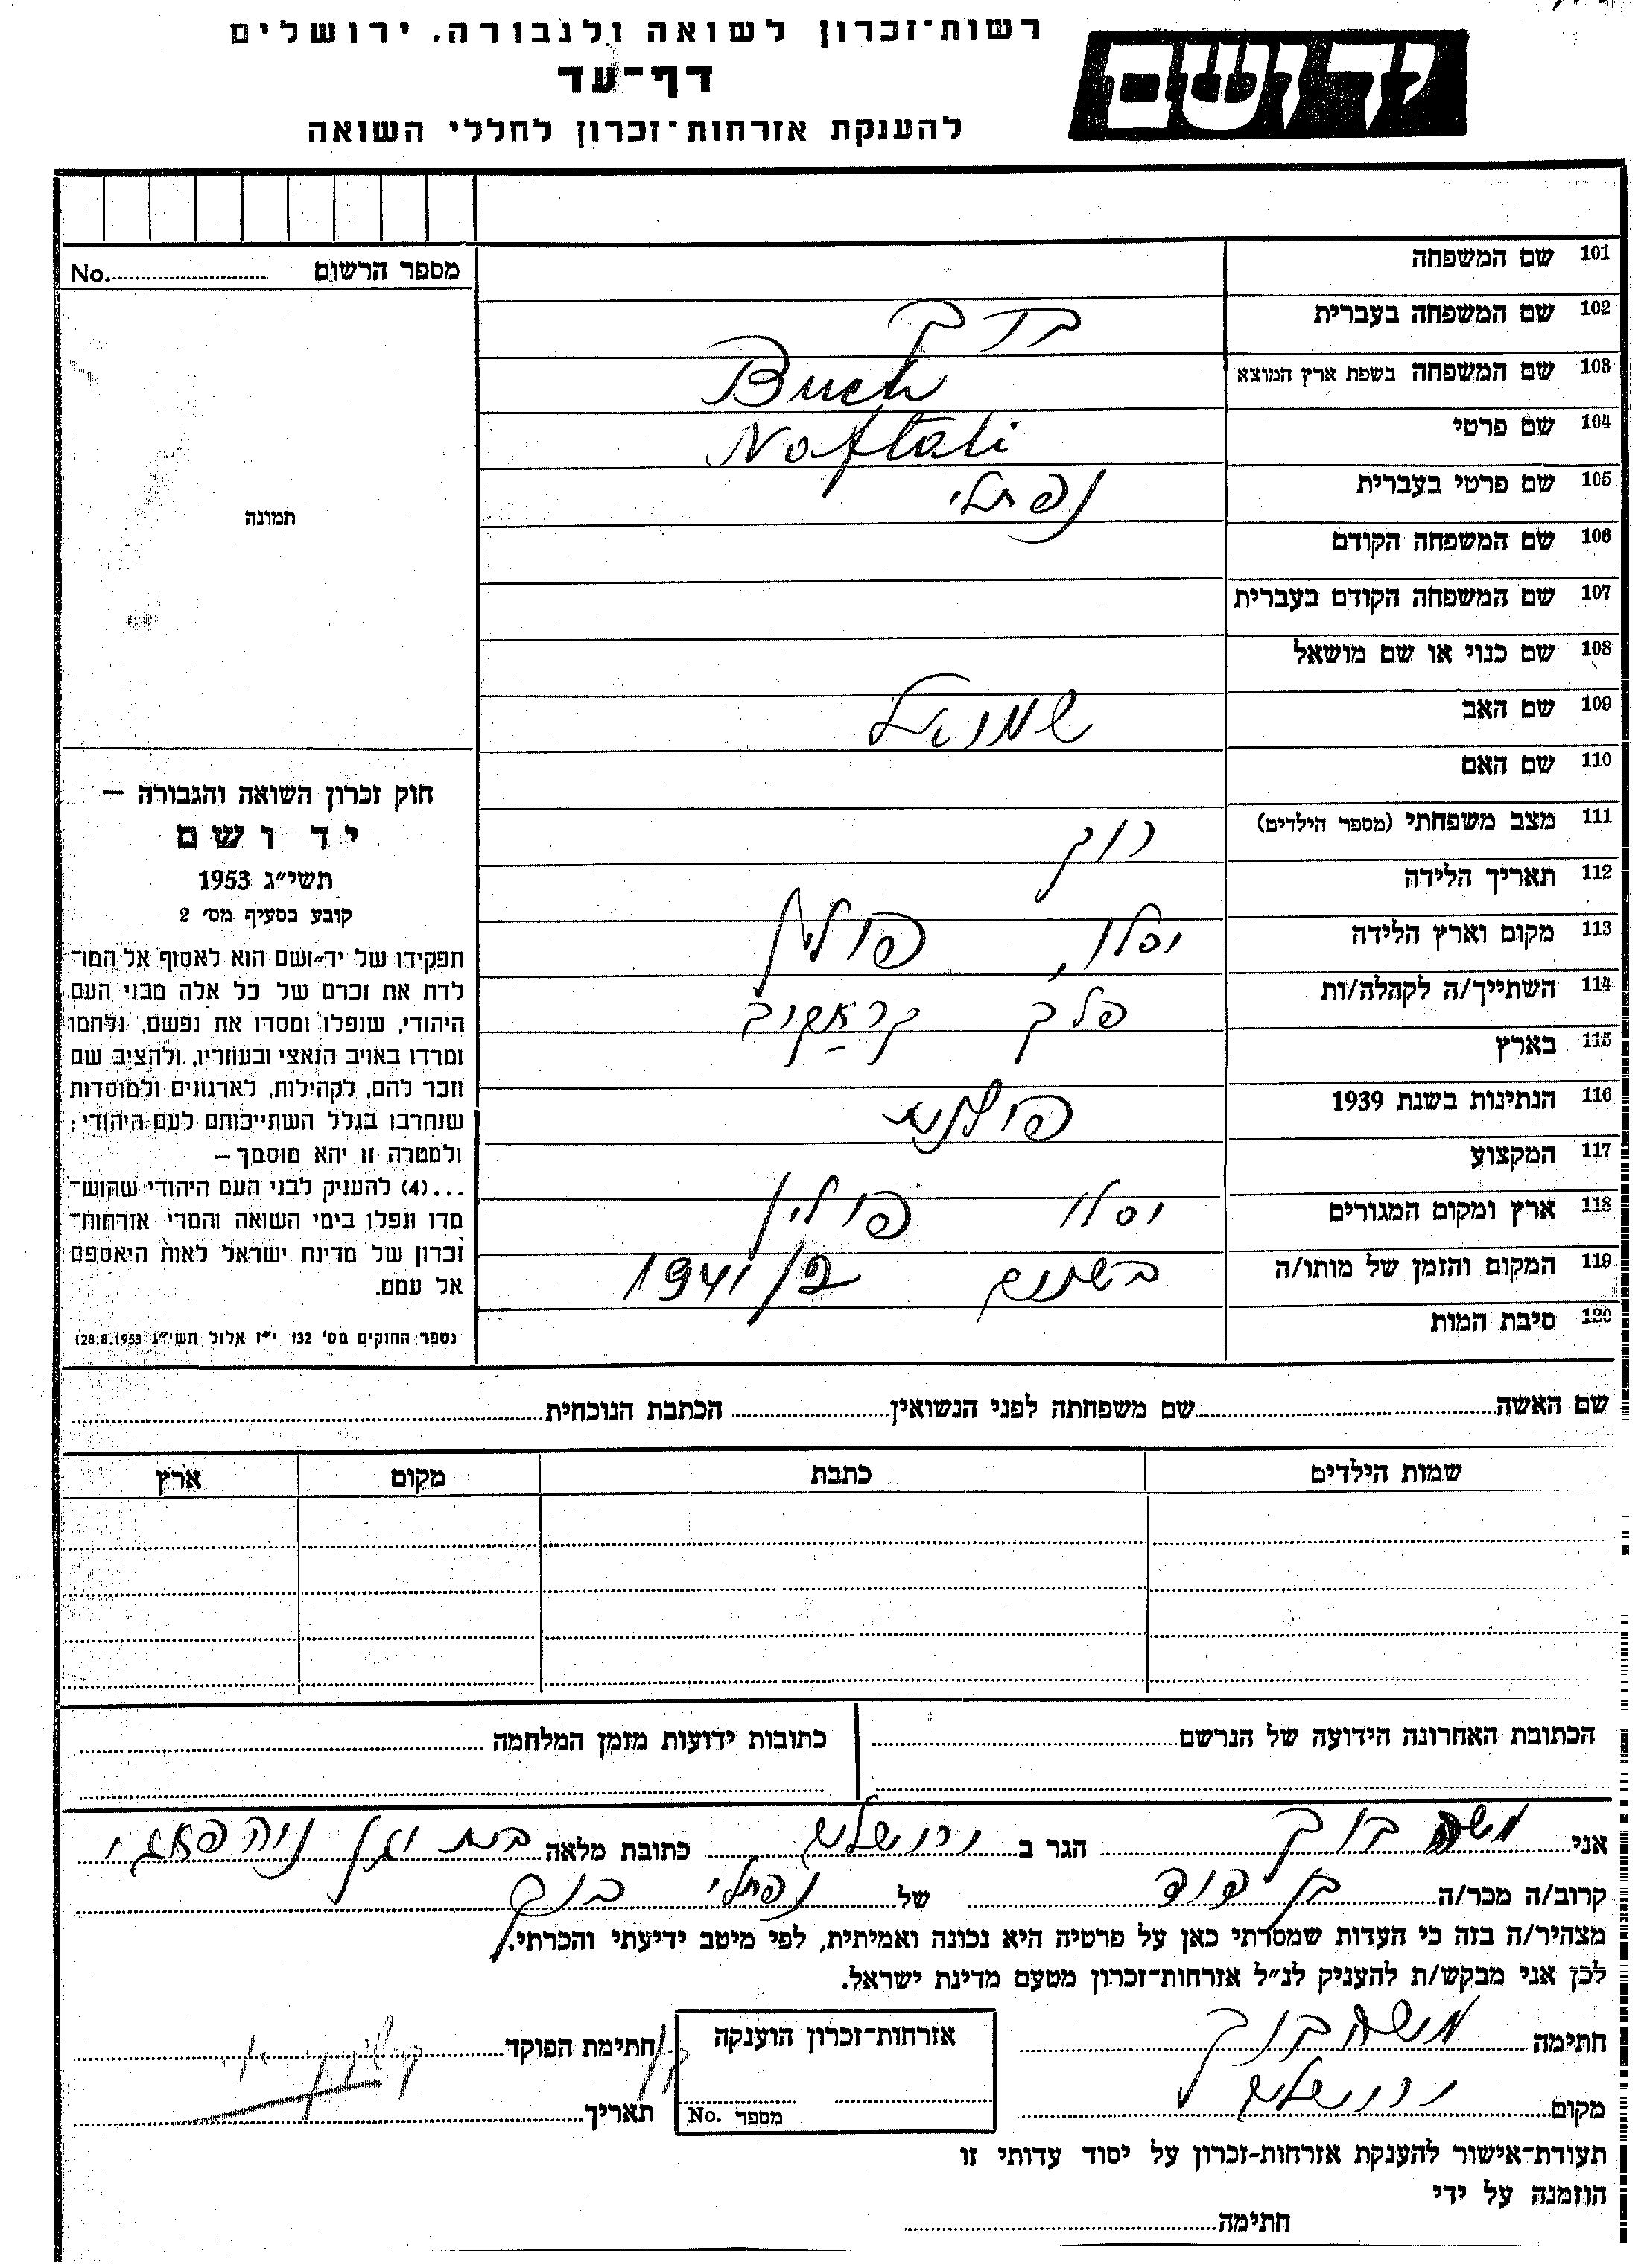 רשות־זכרון לשואה ולגבורה, ירושלים
יד ושם
דף־עד
להענקת אזרחות־זכרון לחללי השואה
No. מספר הרשום
תמונה
101 שם המשפחה
102 שם המשפחה בעברית בוך
103 שם המשפחה בשפת ארץ המוצא Buch
104 שם פרטי Noftali
105 שם פרטי בעברית נפתלי
106 שם המשפחה הקודם
107 שם המשפחה הקודם בעברית
108 שם כנוי או שם מושאל
109 שם האב שמואל
110 שם האם
111 מצב משפחתי (מספר הילדים) רווק
112 תאריך הלידה
113 מקום וארץ הלידה יסלו, פולין
114 השתייך/ה לקהלה/ות פלך קראקוב
115 בארץ
116 הנתינות בשנת 1939 פולנית
117 המקצוע
118 ארץ ומקום המגורים יסלו פולין
119 המקום והזמן של מותו/ה 1941
120 סיבת המות
חוק זכרון השואה והגבורה —
יד ושם
תשי״ג 1953
קובע בסעיף מס׳ 2
תפקידו של יד־ושם הוא לאסוף אל המו־
לדת את זכרם של כל אלה מבני העם
היהודי, שנפלו ומסרו את נפשם, נלחמו
ומרדו באויב הנאצי ובעוזריו, ולהציב שם
וזכר להם, לקהילות, לארגונים ולמוסדות
שנחרבו בגלל השתייכותם לעם היהודי;
ולמטרה זו יהא מוסמך—
...(4) להעניק לבני העם היהודי שהוש־
מדו ונפלו בימי השואה והמרי אזרחות־
זכרון של מדינת ישראל לאות היאספם
אל עמם.
(ספר החוקים מס׳ 132 י״ז אלול תשי״ג 28.8.1953)
שם האשה שם משפחתה לפני הנשואין הכתבת הנוכחית
שמות הילדים כתבת מקום ארץ
הכתובת האחרונה הידועה של הנרשם
כתובות ידועות מזמן המלחמה
אני משה בוך הגר ב ירושלים כתובת מלאה בית וגן
קרוב/ה מכר/ה בן דוד של נפתלי בוך
מצהיר/ה בזה כי העדות שמסרתי כאן על פרטיה היא נכונה ואמיתית, לפי מיטב ידיעתי והכרתי.
לכן אני מבקש/ת להעניק לנ״ל אזרחות־זכרון מטעם מדינת ישראל.
חתימה משה בוך
אזרחות־זכרון הוענקה
חתימת הפוקד
מקום ירושלים
מספר No.
תאריך
תעודת־אישור להענקת אזרחות-זכרון על יסוד עדותי זו
הוזמנה על ידי
חתימה